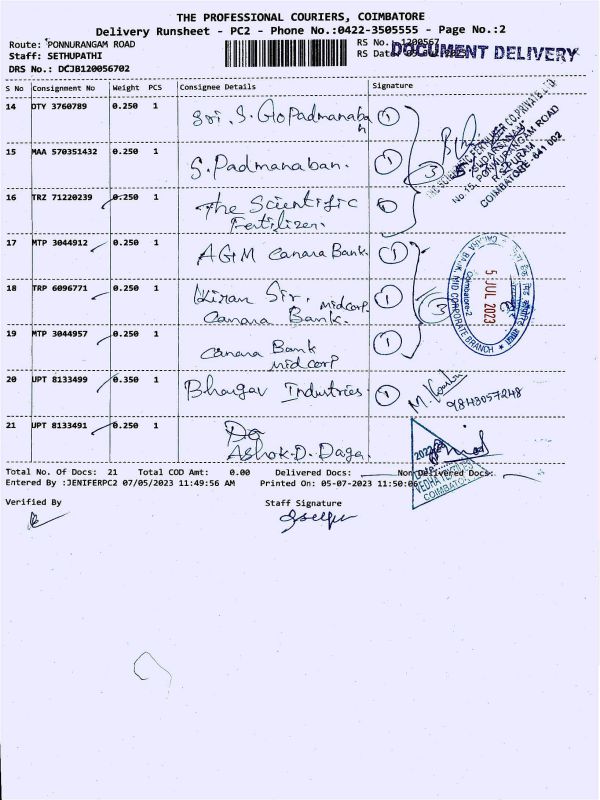 THE PROFESSIONAL COURIERS, COIMBATORE
Delivery Runsheet - PC2 - Phone No.:0422-3505555 - Page No.:2
Route: PONNURANGAM ROAD
Staff: SETHUPATHI
DRS No.: DCJB120056702
RS No. 1200567
RS Date
DOCUMENT DELIVERY
S No Consignment No Weight PCS Consignee Details Signature
14 DTY 3760789 0.250 1 Sri. S. Gopadmanaban 1
15 MAA 570351432 0.250 1 S. Padmanaban. 1
16 TRZ 71220239 0.250 1 The Scientific Fertilizer. 1
3
THE SCIENTIFIC FERTILISER CO. PRIVATE LTD.
No. 15, PONNURANGAM ROAD
R.S.PURAM
COIMBATORE - 641 002
17 MTP 3044912 0.250 1 AGM Canara Bank. 1
18 TRP 6096771 0.250 1 Kiran Sir, midcorp. Canara Bank. 1
19 MTP 3044957 0.250 1 Canara Bank midcorp 1
3
CANARA BANK, MID CORPORATE BRANCH
5 JUL 2023
Coimbatore-2
20 UPT 8133499 0.350 1 Bhargav Industries. 1
9843057248
21 UPT 8133491 0.250 1 Do Ashok.D. Daga.
VEDHA
COIMBATORE
Total No. Of Docs: 21 Total COD Amt: 0.00 Delivered Docs: Non Delivered Docs:
Entered By :JENIFERPC2 07/05/2023 11:49:56 AM Printed On: 05-07-2023 11:50:06
Verified By Staff Signature